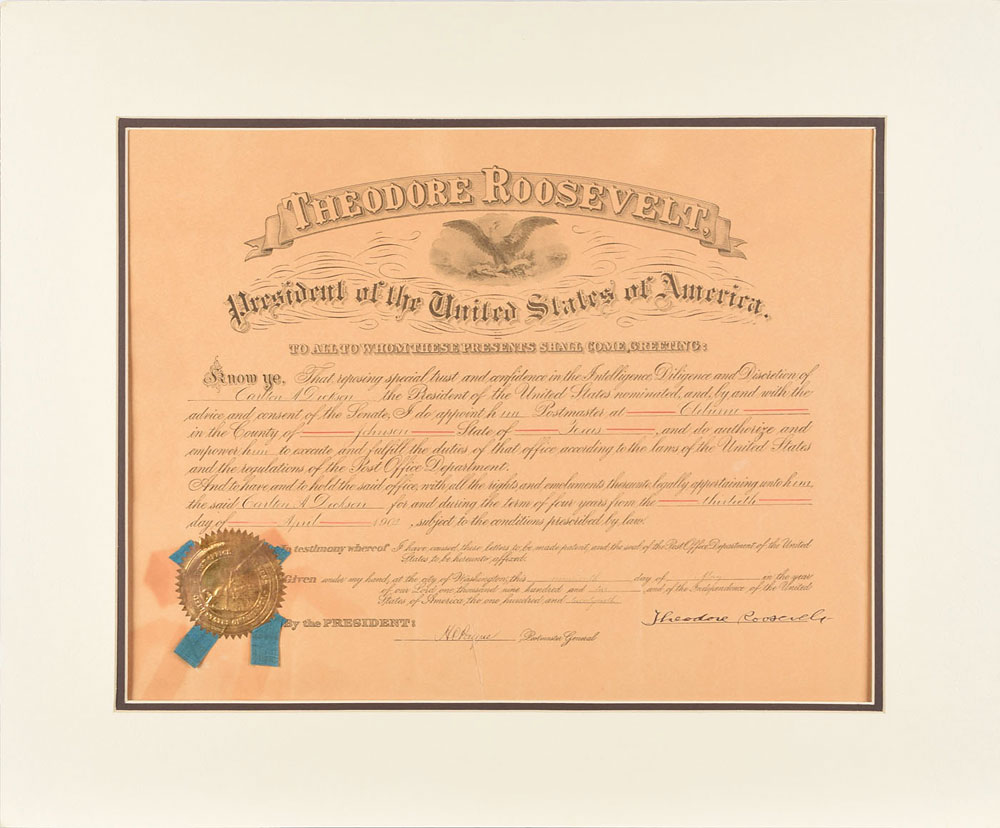 THEODORE ROOSEVELT,
President of the United States of America.
TO ALL TO WHOM THESE PRESENTS SHALL COME, GREETING:
Know ye, That reposing special trust and confidence in the Intelligence Diligence and Discretion of
Dickson the President of the United States nominated, and, by and with the
advice and consent of the Senate, I do appoint him Postmaster at Cleburne
in the County of Johnson State of Texas, and do authorize and
empower him to execute and fulfill the duties of that office according to the laws of the United States
and the regulations of the Post Office Department.
And to have and to hold the said office, with all the rights and emoluments thereunto legally appertaining unto him
the said Dickson for and during the term of four years from the thirtieth
day of April 190, subject to the conditions prescribed by law.
In testimony whereof I have caused these letters to be made patent, and the seal of the Post Office Department of the United
States to be hereunto affixed.
Given under my hand, at the city of Washington, this day of May in the year
of our Lord one thousand nine hundred and two and of the Independence of the United
States of America, the one hundred and
By the PRESIDENT:
Theodore Roosevelt
H C Payne Postmaster General